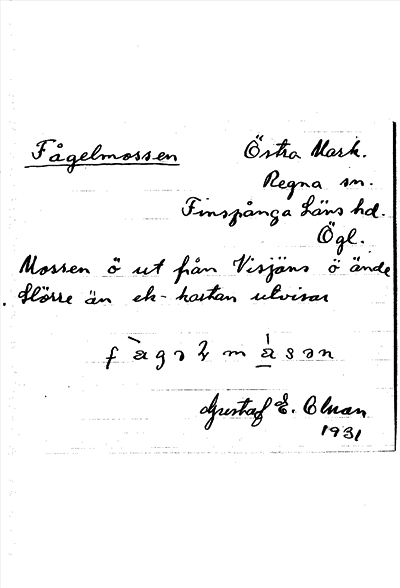 Fågelmossen
Östra Mark.
Regna sn.
Finspånga Läns hd.
Ögl.
Mossen ö ut från Visjöns ö ände
större än ek-kartan utvisar
Gustaf E.
1931